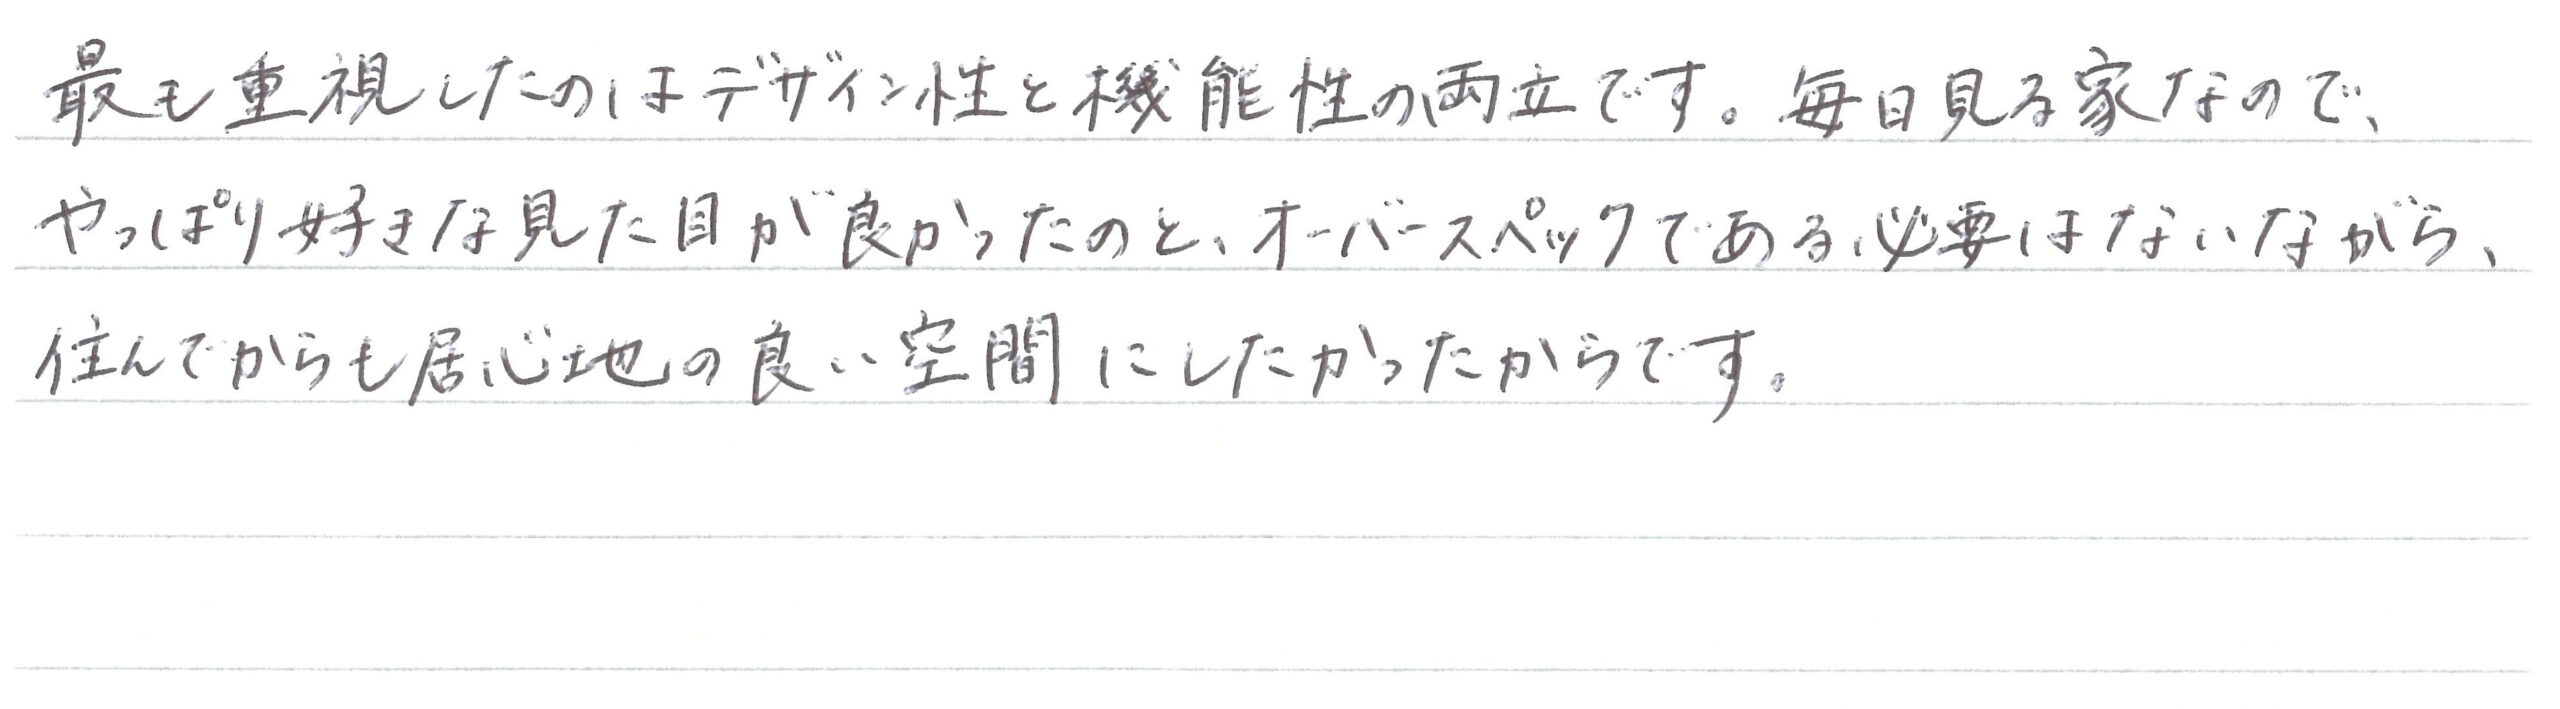 最も重視したのはデザイン性と機能性の両立です。毎日見る家なので、
やっぱり好きな見た目が良かったのと、オーバースペックである必要はないながら、
住んでからも居心地の良い空間にしたかったからです。